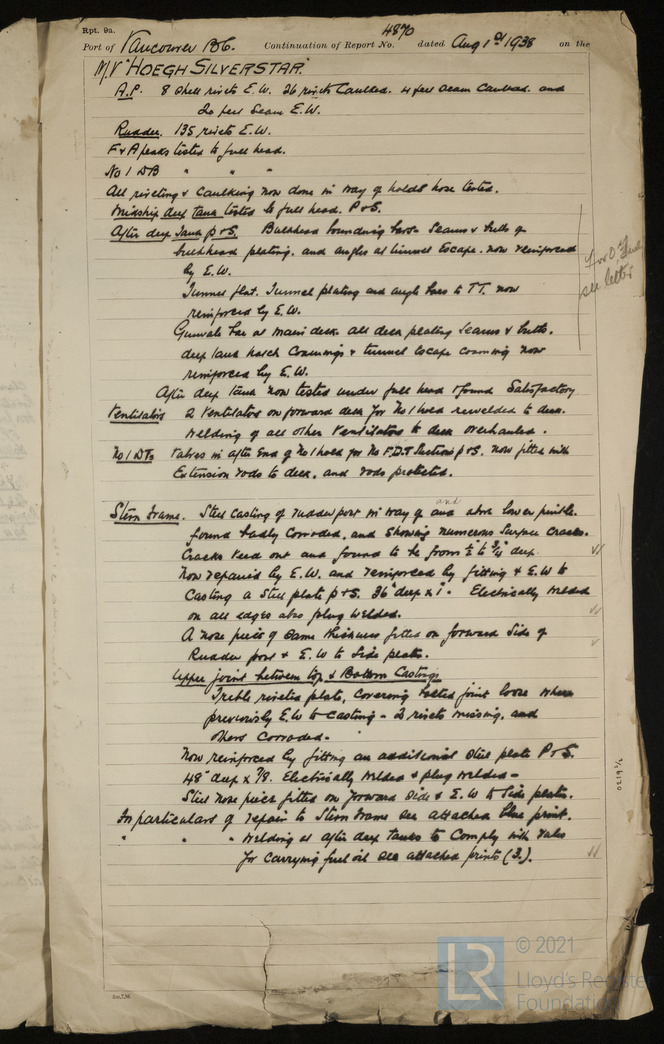 Rpt. 9a.
Port of Vancouver B.C. Continuation of Report No. 4870 dated Aug 1st 1938 on the
M.V "HOEGH SILVERSTAR."
A.P. 8 shell rivets E.W. 26 rivets Caulked. 4 feet seam Caulked. and
20 feet Seam E.W.
Rudder. 135 rivets E.W.
F & A peaks tested to full head.
No 1 DB " " "
All riveting & Caulking now done in way of holds hose tested.
Midship deep tank tested to full head. P & S.
After deep Tank p & s. Bulkhead bounding bars Seams & butts of
bulkhead plating. and angles at tunnel Escape. now reinforced
by E.W.
Tunnel flat. Tunnel plating and angle bars to T.T. now
reinforced by E.W.
Gunwale bar at main deck all deck plating seams & butts.
deep tank hatch Coamings & tunnel escape coaming now
reinforced by E.W.
After deep tank now tested under full head & found Satisfactory
For O. Fuel
see letter
Ventilators 2 Ventilators on forward deck for No 1 hold rewelded to deck.
Welding of all other Ventilators to deck overhauled.
No 1 DTs Valves in after End of No 1 hold for No F.D.T Suctions p & s. now fitted with
Extension rods to deck, and rods protected.
Stern Frame. Steel Casting of rudder post in way of and above lower pintle.
and
found badly Corroded, and showing numerous surface cracks.
Cracks Veed out and found to be from ½" to ¾" deep.
Now repaired by E.W. and reinforced by fitting & E.W to
Casting a Steel plate p & s. 36" deep x 1". Electrically Welded
on all edges also plug welded.
A nose piece of same thickness fitted on forward side of
Rudder post & E.W to Side plates.
Upper joint between top & Bottom Castings
Treble riveted plate, covering bolted joint loose where
previously E.W to Casting - 2 rivets missing, and
others Corroded.
Now reinforced by fitting an additional Steel plate P & S.
48" deep x 7/8. Electrically Welded & plug welded -
Steel nose piece fitted on forward side & E.W to Side plates.
For particulars of repair to Stern Frame see attached blue print.
" " " Welding at after deep tanks to Comply with rules
for carrying fuel oil see attached prints (3.).
0219 2/2
© 2021
LR
Lloyd's Register
Foundation